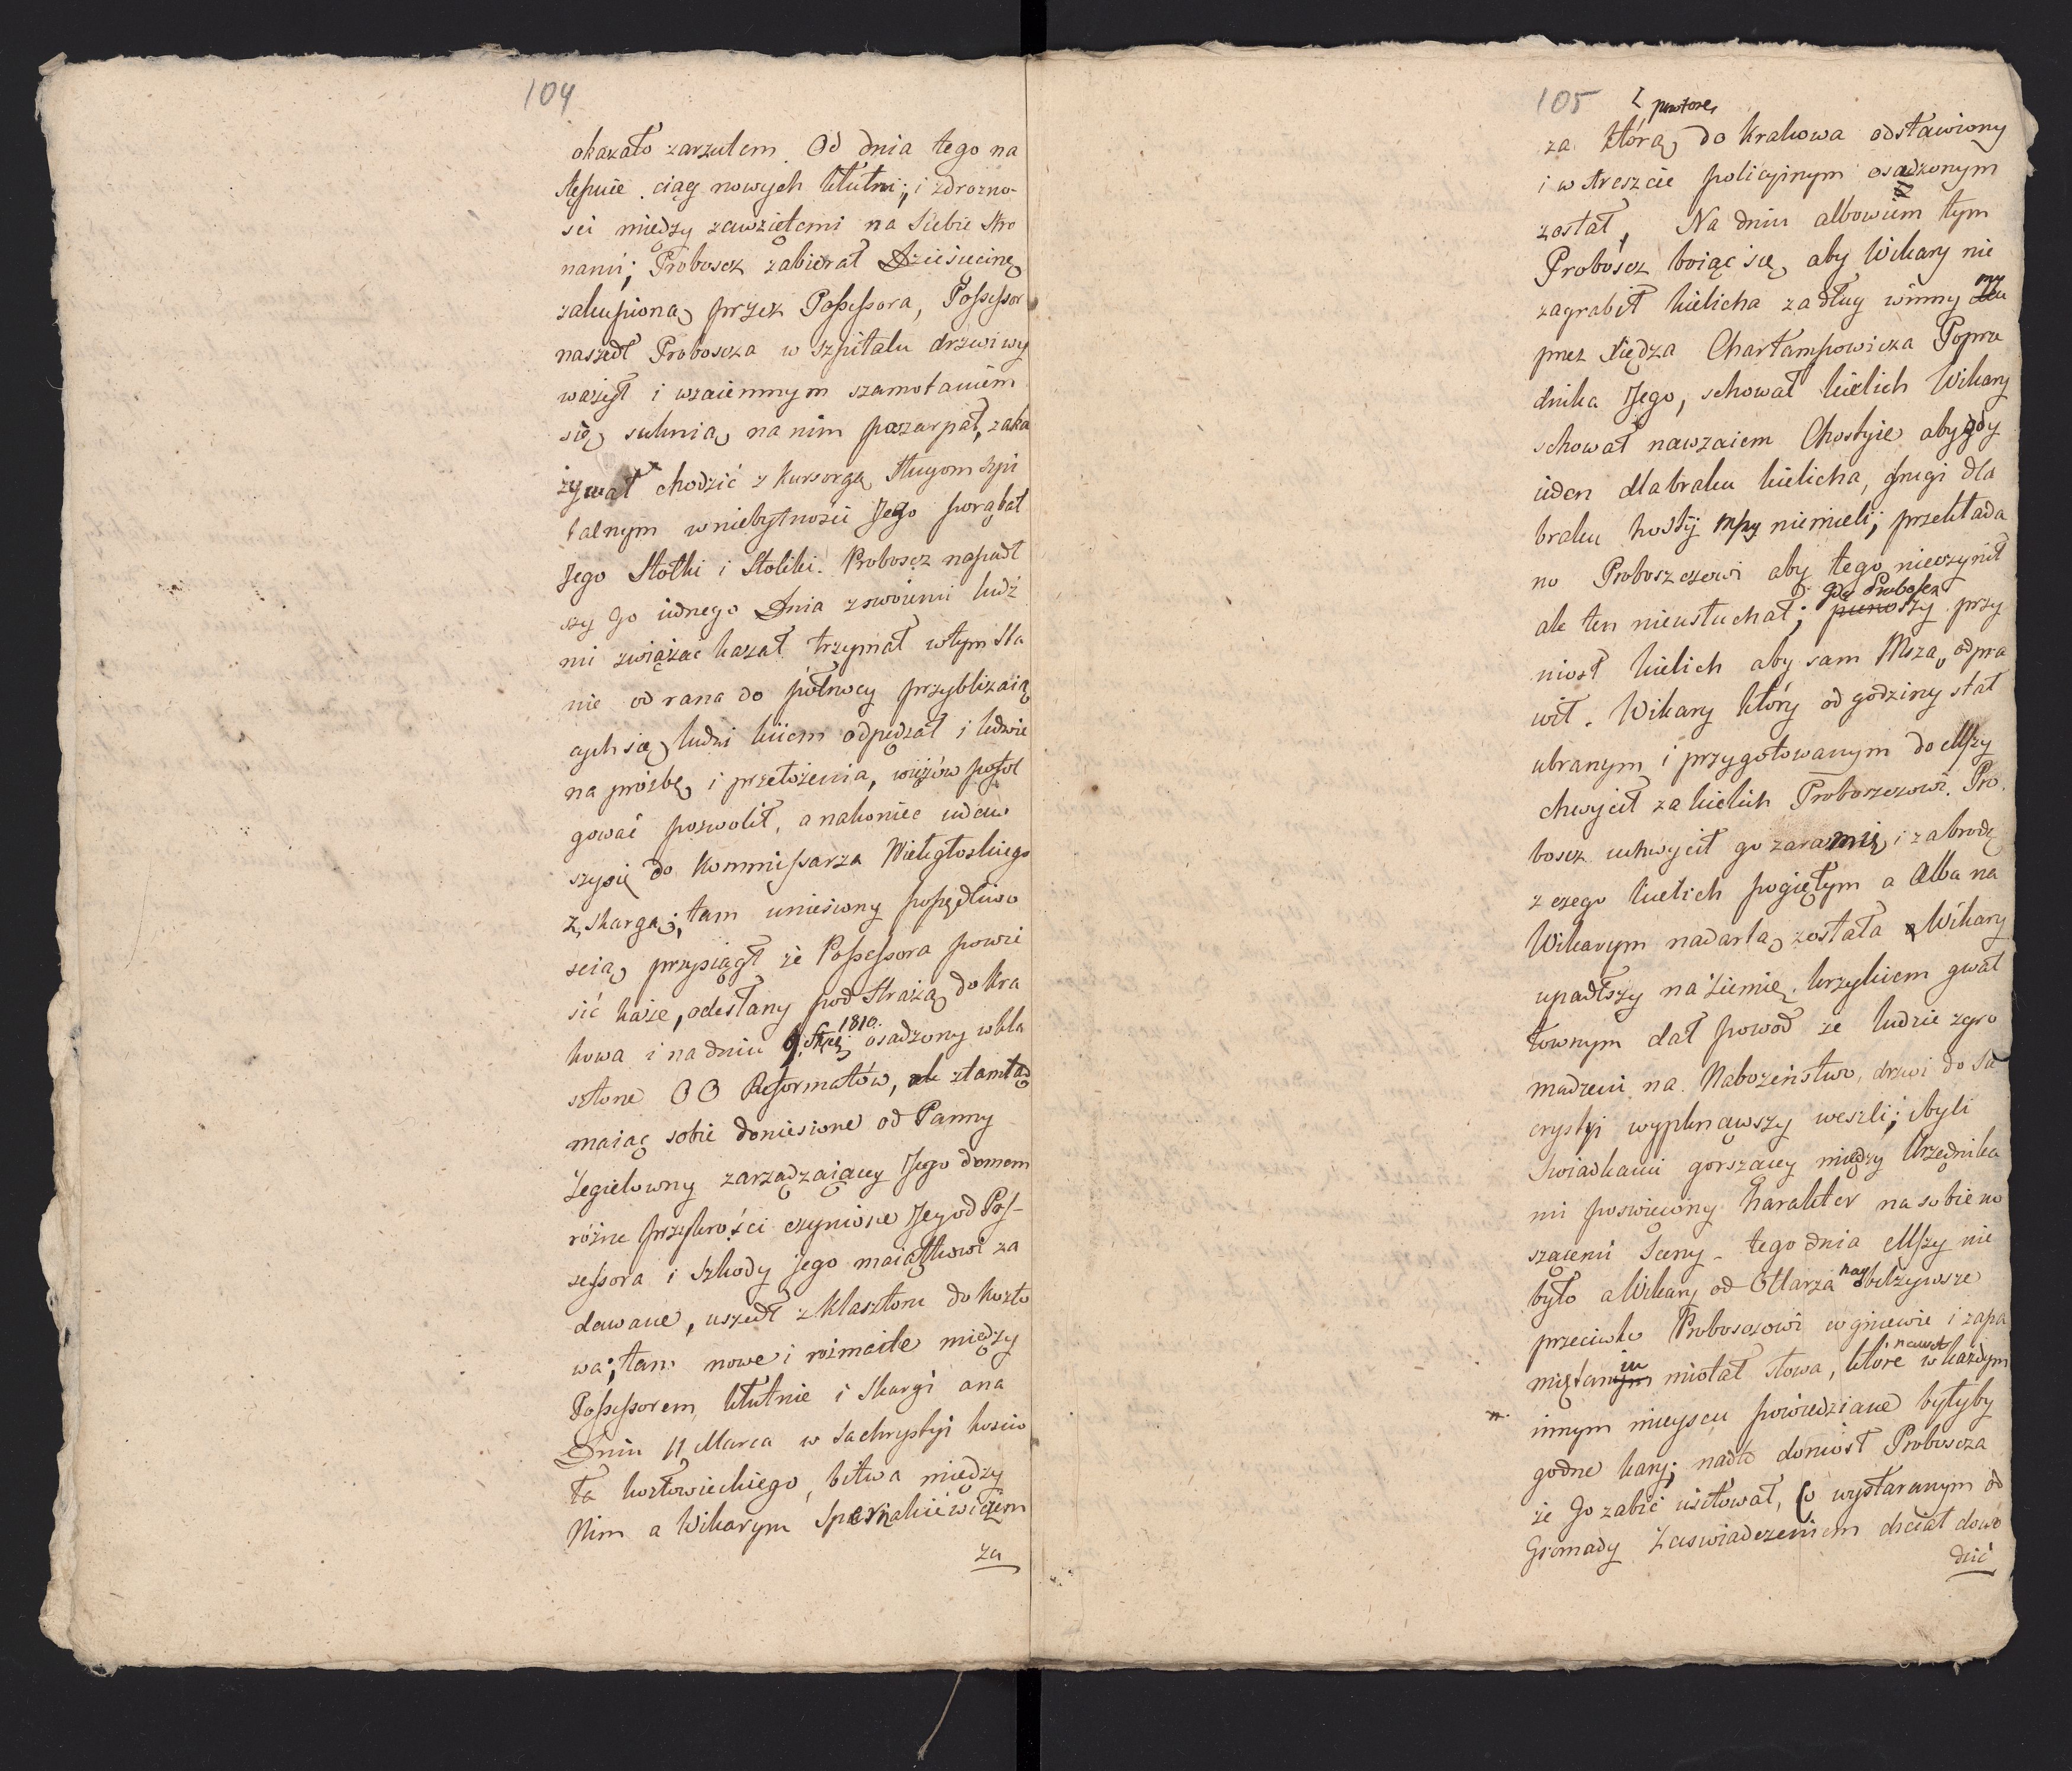 104
okazało zarzutem. Od dnia tego na
stępuie ciąg nowych kłutni; i zdrozno-
sci między zawziętemi na Siebie stro
nami; Proboscz zabierał Dziesięcinę
zakupioną przez Possessora, Possessor
naszedł Proboscza w szpitalu drzwi wy
ważył i wzaiemnym szamotaniem
się suknią na nim poszarpał, zaka
zywał chodzić z Kursorgą sługom szpi
talnym w niebytnosci Jego porąbał
Jego Stołki i Stoliki. Proboscz napadł
szy Go iednego Dnia z swoiemi ludź
mi związać kazał trzymał w tym sta
nie od rana do północy przybliżaią
cych się ludzi kiiem odpędzał i ledwie
na prośbę i przełożenia, więzów pofol
gować pozwolił, a nakoniec udaw
szysię do Kommissarza Wielgłoskiego
z skargą; tam uniesiony popędliwo
scią przysiągł że Possessora powie
sić każe, odesłany pod Strażą do Kra
kowa i na dniu 1810. osadzony w kla
sztorze OO Reformatów, ale ztamtąd
maiąc sobie doniesione od Panny
Zegielowny zarządzaiącey Jego domem
różne przykrości czynione Jey od Pos-
sessora i Szkody Jego maiątkowi za
dawane, uszedł z Klasztoru do Kozło
wa; tam nowe i rozmaite między
Possessorem kłutnie i Skargi a na
Dniu 11 Marca w Sachrystyi koscio
ła kozłowieckiego, bitwa między
Nim a Wikarym Spernakiewiczem
za
105
powtore
za którą do Krakowa odstawiony
i w Areszcie policyinym osadzonym
został, Na dniu albowiem tym
Proboscz boiąc się aby Wikary nie
zagrabił kielicha za dług winny mu
przez Xiędza Charłampowicza Poprze
dnika Jego, schował kielich Wikary
schował nawzaiem Chostyie aby gdy
ieden dla braku kielicha, drugi dla
braku hostyi mszy niemieli; przekłada
no Proboszczowi aby tego nieczynił
gdy Proboscz
ale ten nieusłuchał; przy
niosł kielich aby sam Mszą odpra
wił. Wikary który od godziny stał
ubranym i przygotowanym do Mszy
chwycił za kielich Proboszczowi. Pro
boscz uchwycił go za ramię i za brodę
z czego kielich pogiętym a Alba na
Wikarym nadartą została Wikary
upadłszy na ziemię krzykiem gwał
townym dał powod że ludzie zgro
madzeni na Nabożeństwo, drzwi do Sa
crystyi wypknąwszy weszli; i byli
Swiadkami gorszącey między Urzędnika
mi poswięcony Charakter na sobie no
szącemi Sceny - tego dnia Mszy nie
było a Wikary od Ołtarza nayobelzywsze
przeciwko Proboszczowi w gniewie i zapa
nawet
miętaniu miotał słowa, które w każdym
innym mieyscu powiedziane byłyby
godne kary; nadto doniosł Proboscza
że Go zabić usiłował, co wystaranym od
Gromady Zaswiadczeniem chciał dowo
dzić